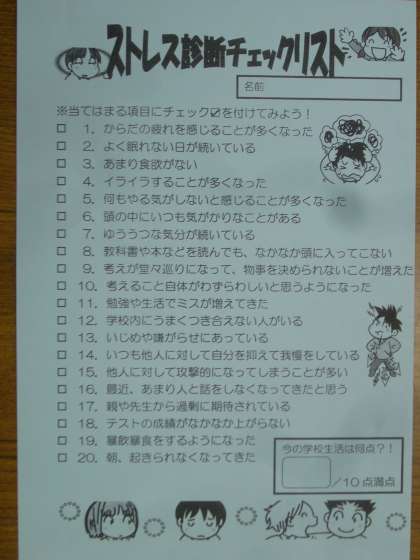 ストレス診断チェックリスト
名前
※当てはまる項目にチェック☑を付けてみよう！
□ 1．からだの疲れを感じることが多くなった
□ 2．よく眠れない日が続いている
□ 3．あまり食欲がない
□ 4．イライラすることが多くなった
□ 5．何もやる気がしないと感じることが多くなった
□ 6．頭の中にいつも気がかりなことがある
□ 7．ゆううつな気分が続いている
□ 8．教科書や本などを読んでも、なかなか頭に入ってこない
□ 9．考えが堂々巡りになって、物事を決められないことが増えた
□ 10．考えること自体がわずらわしいと思うようになった
□ 11．勉強や生活でミスが増えてきた
□ 12．学校内にうまくつき合えない人がいる
□ 13．いじめや嫌がらせにあっている
□ 14．いつも他人に対して自分を抑えて我慢をしている
□ 15．他人に対して攻撃的になってしまうことが多い
□ 16．最近、あまり人と話をしなくなってきたと思う
□ 17．親や先生から過剰に期待されている
□ 18．テストの成績がなかなか上がらない
□ 19．暴飲暴食をするようになった
□ 20．朝、起きられなくなってきた
今の学校生活は何点？！
/10点満点